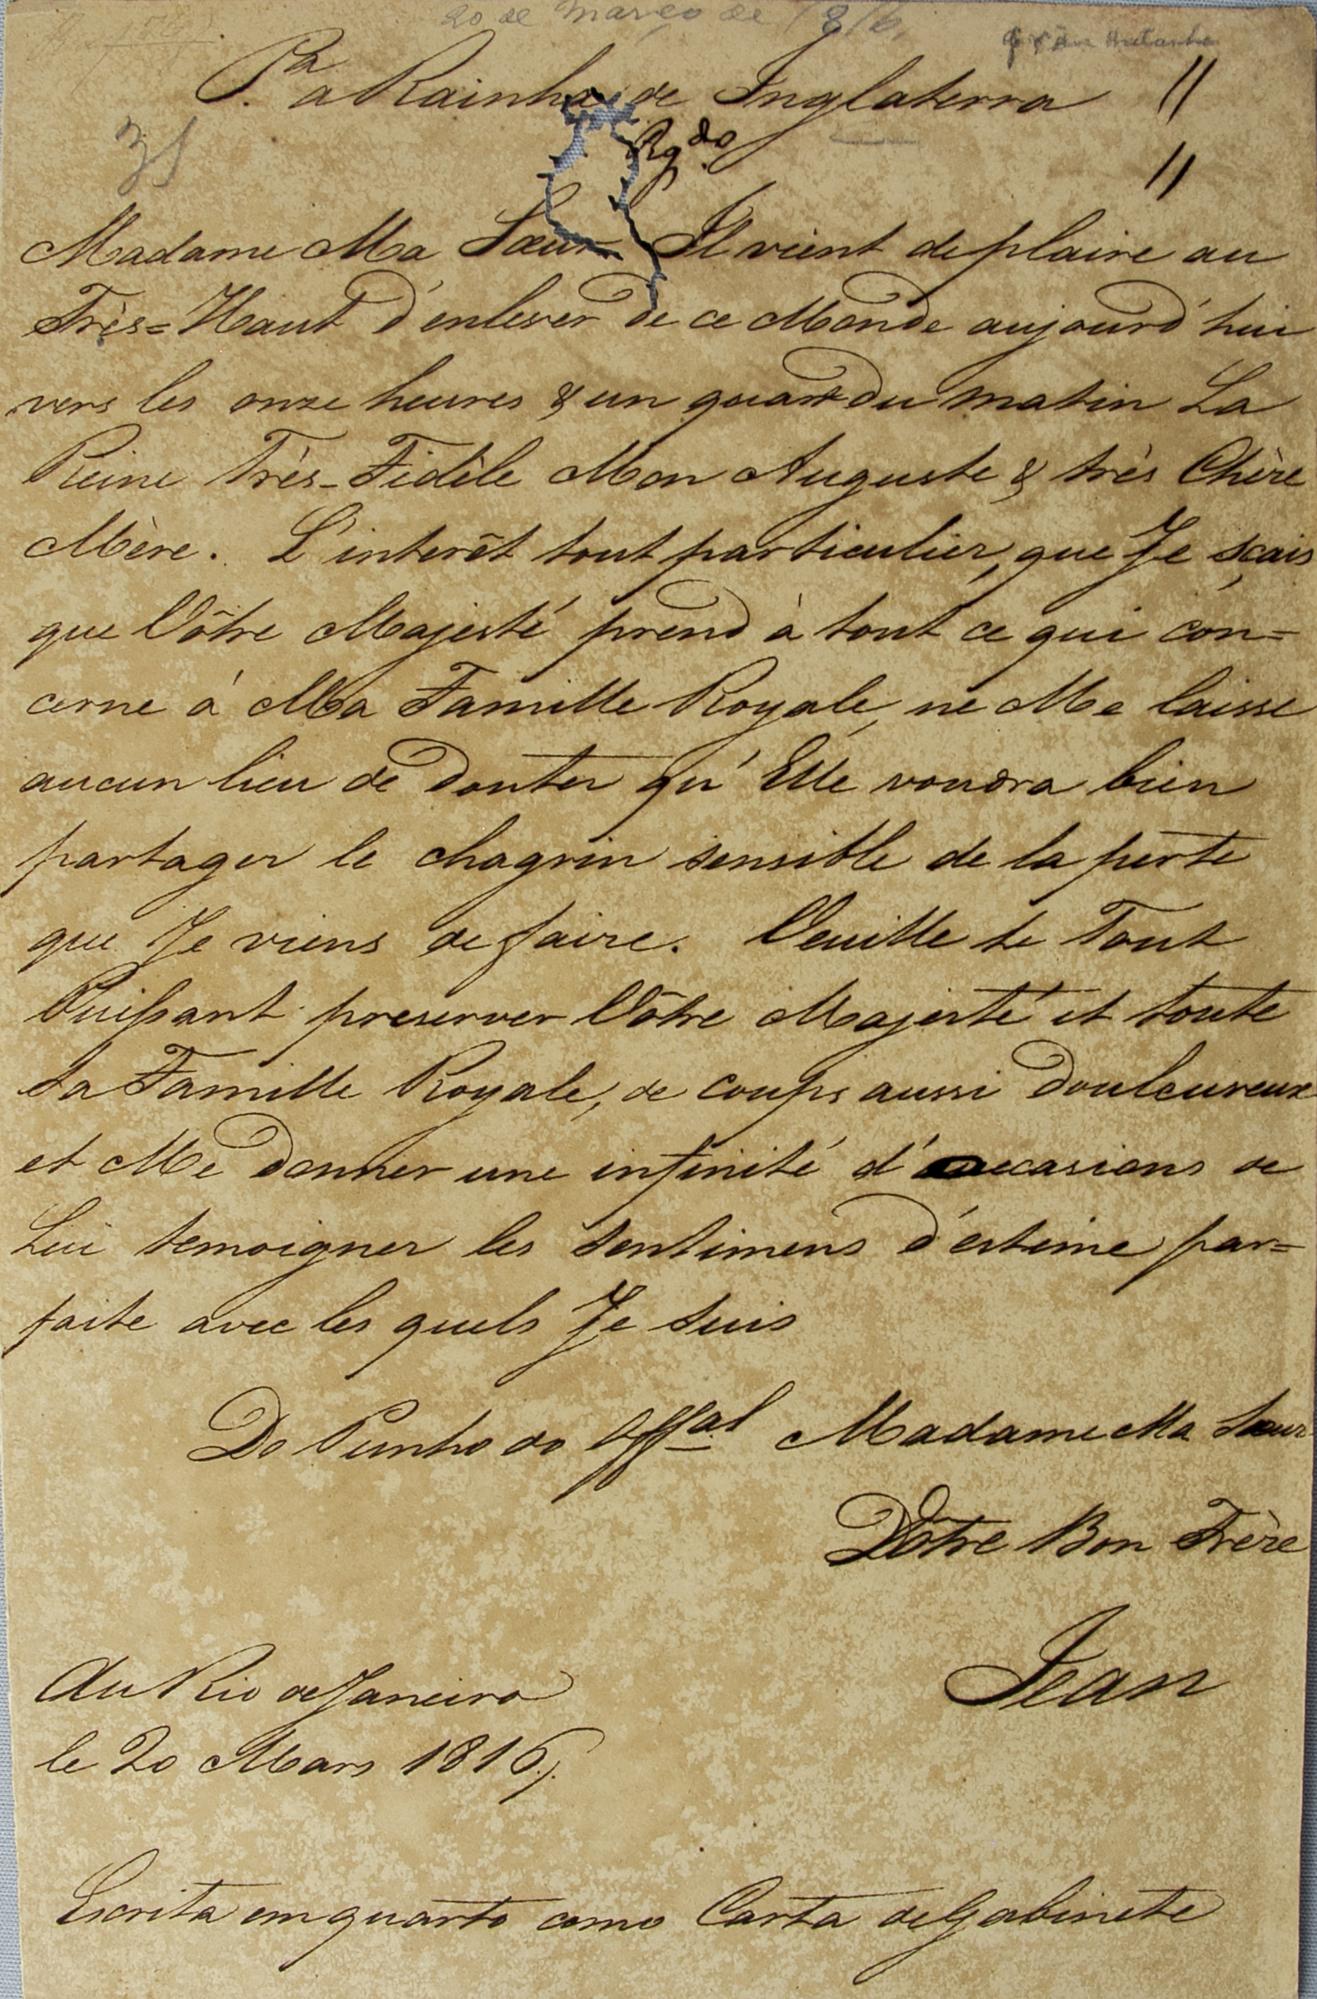 20 de Março de 1816.
P.ª a Rainha de Inglaterra //
Rg.do //
31
Madame Ma Sœur Il vient de plaire au
Très=Haut d'enlever de ce Monde aujourd'hui
vers les onze heures & un quart du matin La
Reine Très-Fidèle Mon Auguste & très Chère
Mère. L'interêt tout particulier, que Je sçais
que Vôtre Majesté prend à tout ce qui con=
cerne à Ma Famille Royale, ne Me laisse
aucun lieu de douter qu'Elle voudra bien
partager le chagrin sensible de la perte
que Je viens de faire. Veuille le Tout
Puissant preserver Vôtre Majesté et toute
Sa Famille Royale, de coups aussi douloureux
et Me donner une infinité d'occasions de
Lui temoigner les sentimens d'estime par=
faite avec les quels Je suis
Do Punho do Offal Madame Ma Sœur
Vôtre Bon Frère
Jean
Au Rio de Janeiro
le 20 Mars 1816.
Escrita em quarto como Carta de Gabinete